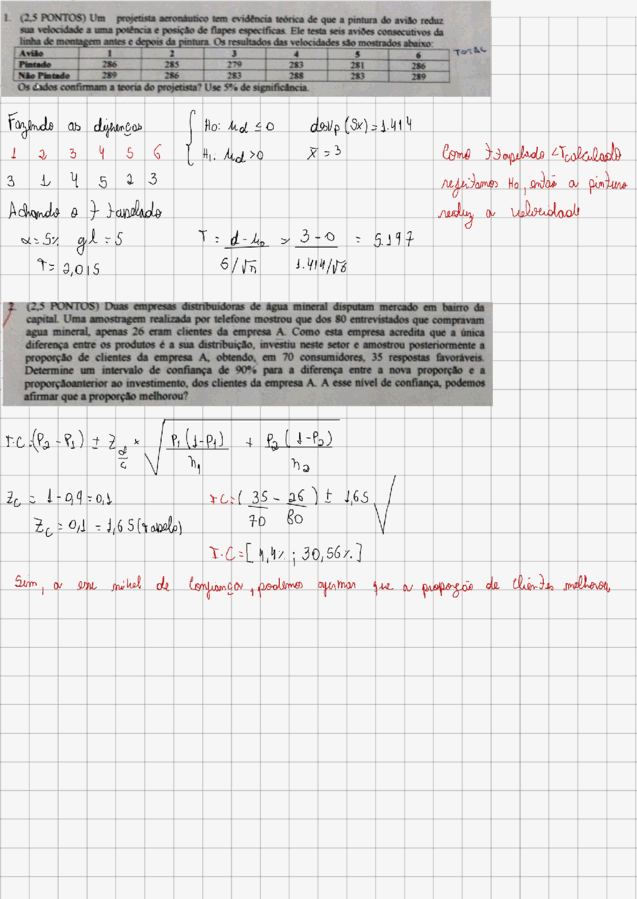 1. (2,5 PONTOS) Um projetista aeronáutico tem evidência teórica de que a pintura do avião reduz
sua velocidade a uma potência e posição de flapes específicas. Ele testa seis aviões consecutivos da
linha de montagem antes e depois da pintura. Os resultados das velocidades são mostrados abaixo:
TOTAL
Avião 1 2 3 4 5 6
Pintado 286 285 279 283 281 286
Não Pintado 289 286 283 288 283 289
Os dados confirmam a teoria do projetista? Use 5% de significância.
Fazendo as diferenças
1 2 3 4 5 6
3 1 4 5 2 3
Achando o t tabelado
α=5% gl=5
T=2,015
H0: μd ≤ 0
H1: μd > 0
desvp (Sx) = 1.414
x̄ = 3
T = d-μ0 / 6/√n = 3-0 / 1.414/√6 = 5.197
Como t tapelado < Tcalculado
rejeitamos H0, então a pintura
reduz a velocidade
2. (2,5 PONTOS) Duas empresas distribuidoras de água mineral disputam mercado em bairro da
capital. Uma amostragem realizada por telefone mostrou que dos 80 entrevistados que compravam
agua mineral, apenas 26 eram clientes da empresa A. Como esta empresa acredita que a única
diferença entre os produtos é a sua distribuição, investiu neste setor e amostrou posteriormente a
proporção de clientes da empresa A, obtendo, em 70 consumidores, 35 respostas favoráveis.
Determine um intervalo de confiança de 90% para a diferença entre a nova proporção e a
proporçãoanterior ao investimento, dos clientes da empresa A. A esse nível de confiança, podemos
afirmar que a proporção melhorou?
I.C:(P2-P1) ± Z * √ P1(1-P1) / n1 + P2(1-P2) / n2
Zc = 1-0,9 = 0,1
Zc = 0,1 = 1,65 (tabela)
I.C=( 35/70 - 26/80 ) ± 1,65 √
I.C=[4,4% ; 30,56%]
Sim, a esse nível de confiança, podemos afirmar que a proporção de clientes melhorou,